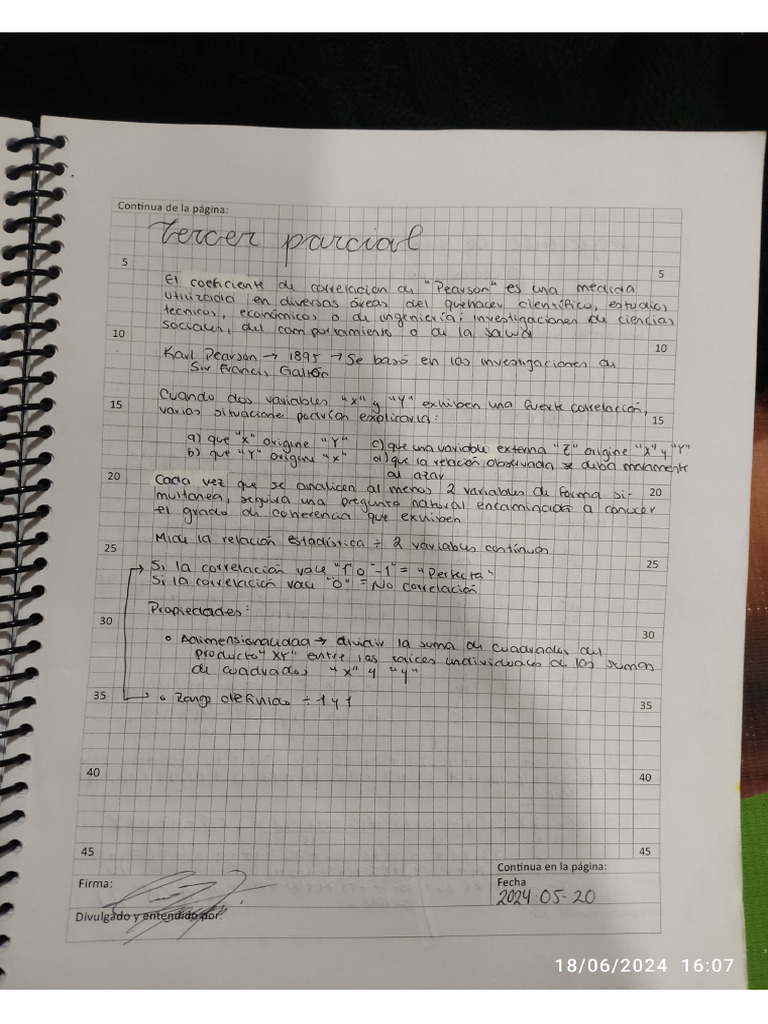 Continua de la página:
tercer parcial
5 5
El coeficiente de correlacion de "Pearson" es una medida
utilizada en diversas áreas del quehacer científico, estudios
tecnicos, económicos o de ingeniería; investigaciones de ciencias
sociales, del comportamiento o de la salud
10 10
Karl Pearson → 1895 → Se basó en las investigaciones de
Sir Francis Galtón
Cuando dos variables "x" y "Y" exhiben una fuerte correlación,
15 varias situaciones podrían explicarla: 15
a) que "X" origine "Y" c) que una variable externa "Z" origine "X" y "Y"
b) que "Y" origine "x" d) que la relación observada se deba meramente
al azar
20 Cada vez que se analicen al menos 2 variables de forma si- 20
multanea, seguira una pregunta natural encaminada a conocer
el grado de coherencia que exhiben
25 Mide la relación estadística ÷ 2 variables continuas 25
Si la correlación vale "1" o "-1" = "Perfecta"
Si la correlación vale "0" = No correlación
30 Propiedades: 30
Adimensionalidad → dividir la suma de cuadrados del
producto "XY" entre las raíces individuales de las sumas
de cuadrados "x" y "y"
35 Rango definido ÷ -1 y 1 35
40 40
45 45
Continua en la página:
Firma:
Fecha
2024-05-20
Divulgado y entendido por:
18/06/2024 16:07